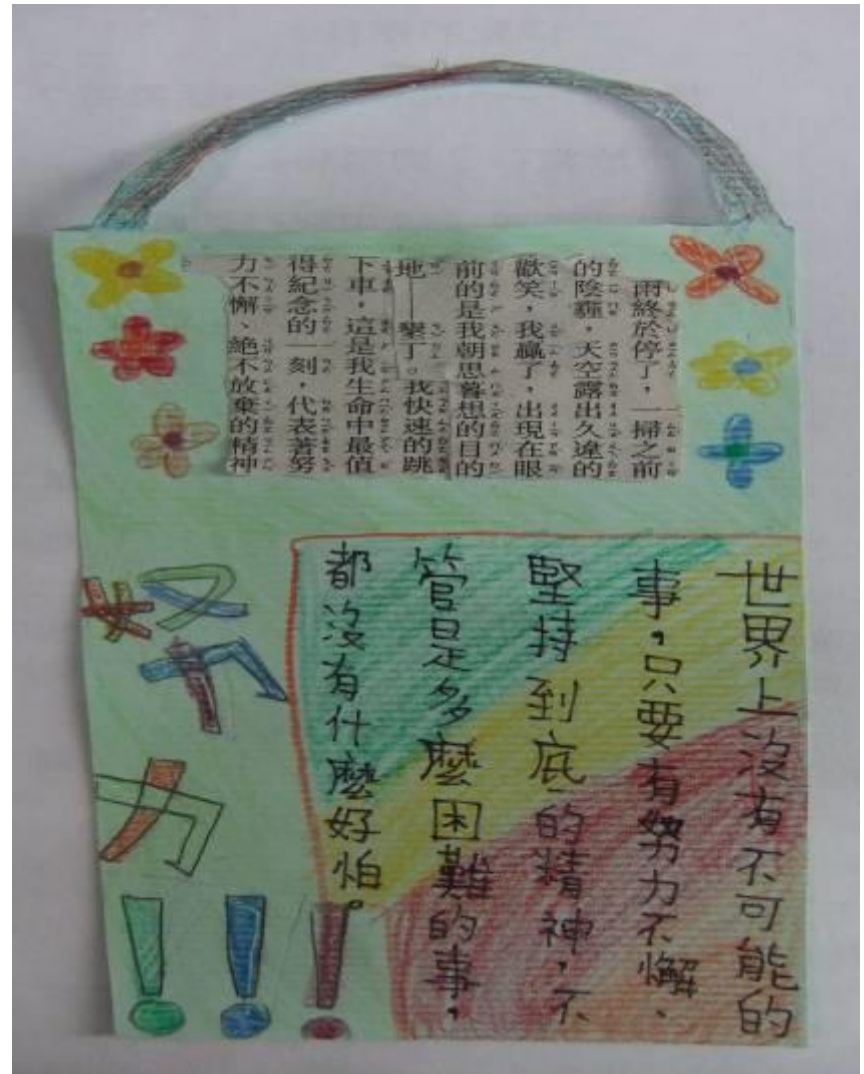 雨終於停了，一掃之前
的陰霾，天空露出久違的
歡笑，我贏了，出現在眼
前的是我朝思暮想的目的
地——墾丁。我快速的跳
下車，這是我生命中最值
得紀念的一刻，代表著努
力不懈、絕不放棄的精神
世界上沒有不可能的
事，只要有努力不懈、
堅持到底的精神，不
管是多麼困難的事，
都沒有什麼好怕。
努力!!!